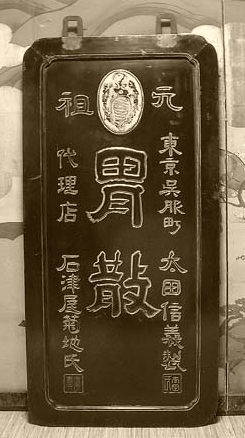 元祖
東京呉服町 太田信義製
胃散
代理店 石津屋菊地氏